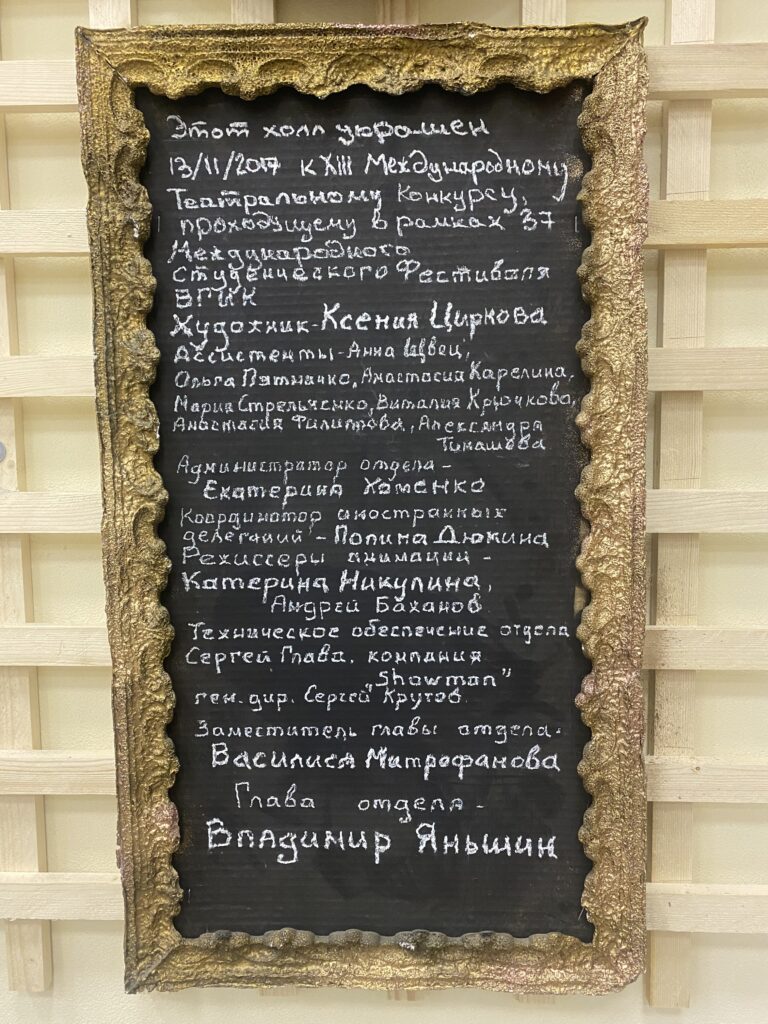 Этот холл украшен
13/11/2017 к XIII Международному
Театральному Конкурсу,
проходящему в рамках 37
Международного
Студенческого Фестиваля
ВГИК
Художник - Ксения Циркова
Ассистенты - Анна Швец,
Ольга Пятначко, Анастасия Карелина,
Мария Стрельченко, Виталия Крючкова,
Анастасия Филиппова, Александра
Тимашова
Администратор отдела -
Екатерина Хоменко
Координатор иностранных
делегаций - Полина Дюкина
Режиссеры анимации -
Катерина Никулина,
Андрей Баханов
Техническое обеспечение отдела
Сергей Глава. компания
"Showman"
ген. дир. Сергей Крутов.
Заместитель главы отдела -
Василиса Митрофанова
Глава отдела -
Владимир Яньшин